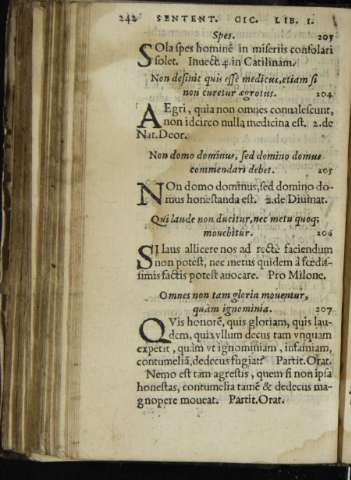 242 SENTENT. CIC. LIB. I.
Spes. 203
SOla spes hominē in miseriis consolari
solet. Inuect. 4. in Catilinam.
Non desinit quis esse medicus, etiam si
non curetur ægrotus. 204
AEgri, quia non omnes conualescunt,
non idcirco nulla medicina est. 2. de
Nat. Deor.
Non domo dominus, sed domino domus
commendari debet. 205
NOn domo dominus, sed domino do-
mus honestanda est. 2. de Diuinat.
Qui laude non ducitur, nec metu quoq;
mouebitur. 206
SI laus allicere nos ad rectè faciendum
non potest, nec metus quidem à fœdis-
simis factis potest auocare. Pro Milone.
Omnes non tam gloria mouentur,
quàm ignominia. 207
QVis honorē, quis gloriam, quis lau-
dem, quis vllum decus tam vnquam
expetit, quàm vt ignominiam, infamiam,
contumeliā, dedecus fugiat? Partit. Orat.
Nemo est tam agrestis, quem si non ipsa
honestas, contumelia tamē & dedecus ma-
gnopere moueat. Partit. Orat.